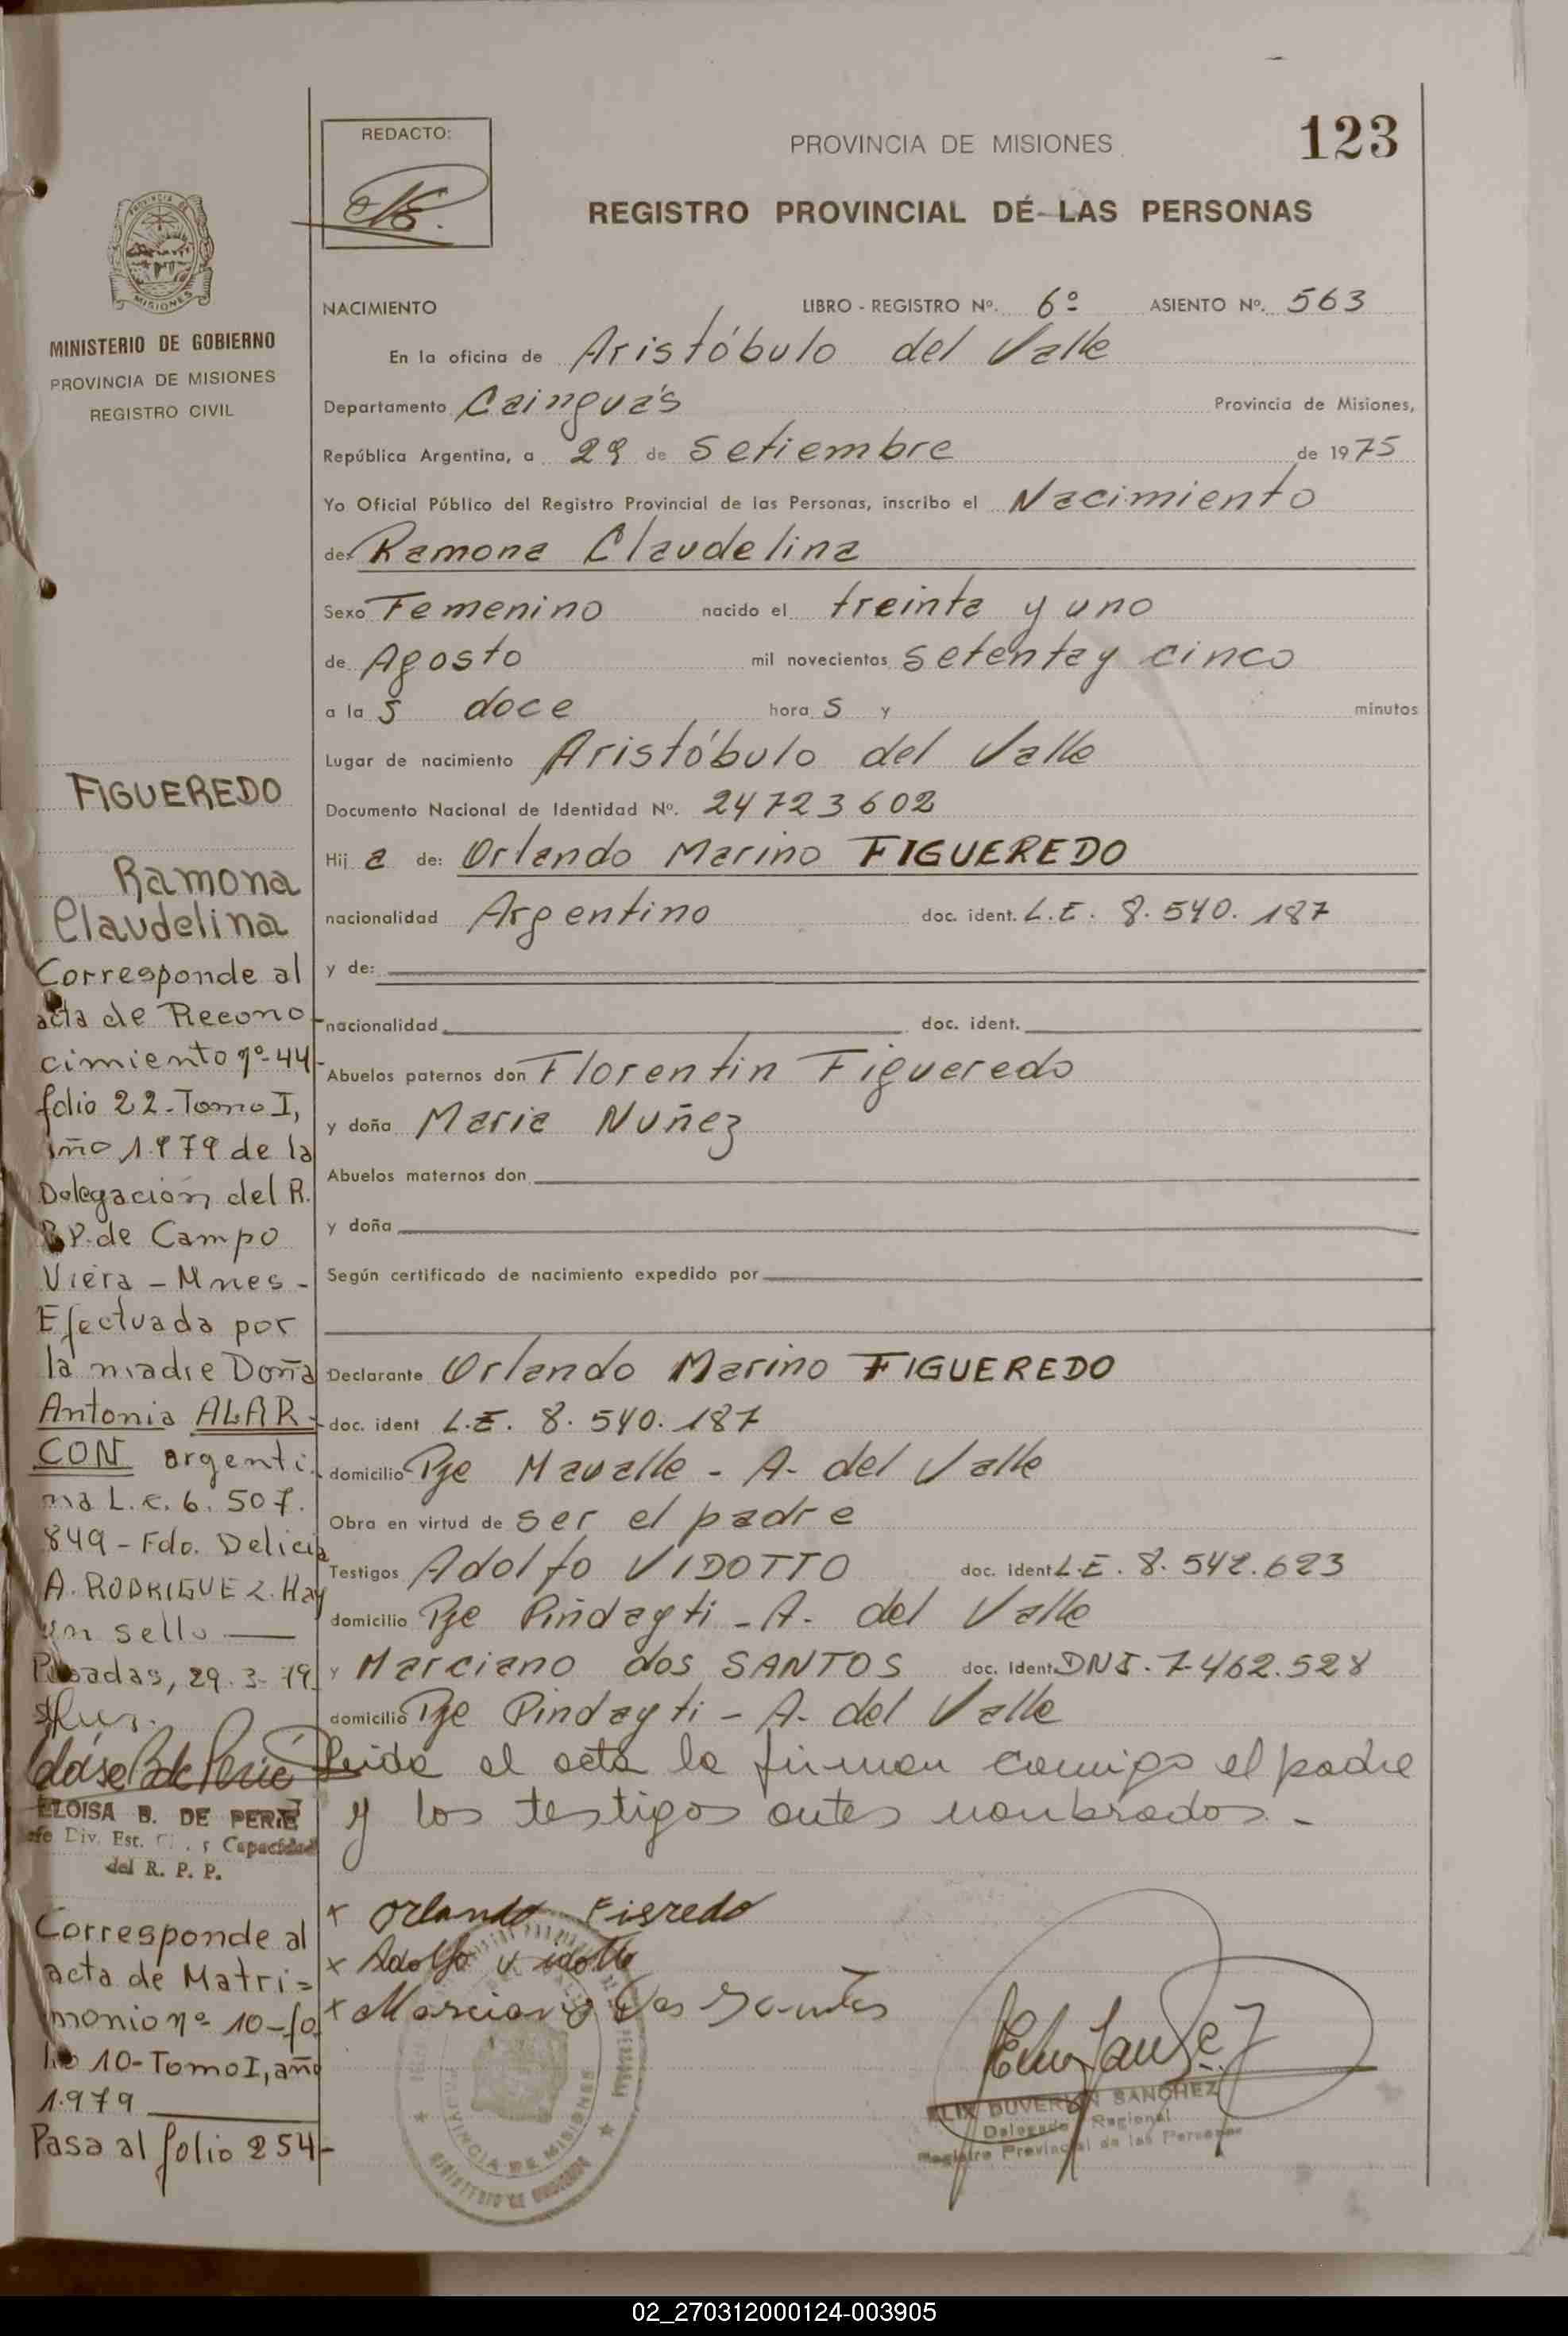 REDACTO:
PROVINCIA DE MISIONES
123
REGISTRO PROVINCIAL DE LAS PERSONAS
PROVINCIA DE
MISIONES
MINISTERIO DE GOBIERNO
PROVINCIA DE MISIONES
REGISTRO CIVIL
FIGUEREDO
Ramona
Claudelina
Corresponde al
acta de Recono-
cimiento nº 44-
folio 22-Tomo I,
año 1.979 de la
Delegación del R.
P.P. de Campo
Viera - Mnes -
Efectuada por
la madre Doña
Antonia ALAR-
CON argenti-
na L.C. 6.507.
849 - Fdo. Delicia
A. RODRIGUEZ. Hay
un sello —
Posadas, 29.3.79.
ELOISA B. DE PERIÉ
Jefe Div. Est. Capacidad
del R. P. P.
Corresponde al
acta de Matri=
monio nº 10-fo
lio 10-Tomo I, año
1.979
Pasa al folio 254-
NACIMIENTO LIBRO - REGISTRO Nº. 6º ASIENTO Nº. 563
En la oficina de Aristóbulo del Valle
Departamento Cainguás Provincia de Misiones,
República Argentina, a 29 de Setiembre de 1975
Yo Oficial Público del Registro Provincial de las Personas, inscribo el Nacimiento
de: Ramona Claudelina
Sexo Femenino nacido el treinta y uno
de Agosto mil novecientos setenta y cinco
a la s doce hora s y minutos
Lugar de nacimiento Aristóbulo del Valle
Documento Nacional de Identidad Nº. 24723602
Hij a de: Orlando Marino FIGUEREDO
nacionalidad Argentino doc. ident. L.E. 8.540.187
y de:
nacionalidad doc. ident.
Abuelos paternos don Florentin Figueredo
y doña Maria Nuñez
Abuelos maternos don
y doña
Según certificado de nacimiento expedido por
Declarante Orlando Marino FIGUEREDO
doc. ident L.E. 8.540.187
domicilio Pje Mavalle - A. del Valle
Obra en virtud de ser el padre
Testigos Adolfo VIDOTTO doc. ident L.E. 8.542.623
domicilio Pje Piñdayti - A. del Valle
y Marciano dos SANTOS doc. Ident. DNI. 7.462.528
domicilio Pje Pindayti - A. del Valle
Leida el acta la firman conmigo el padre
y los testigos antes nombrados. -
x Orlando Fisredo
x Adolfo Vidotto
x Marciano Dos Santos
PROVINCIA DE MISIONES
MINISTERIO DE GOBIERNO
FELIX DUVERLIN SANCHEZ
Delegado Regional
Registro Provincial de las Personas
02_270312000124-003905